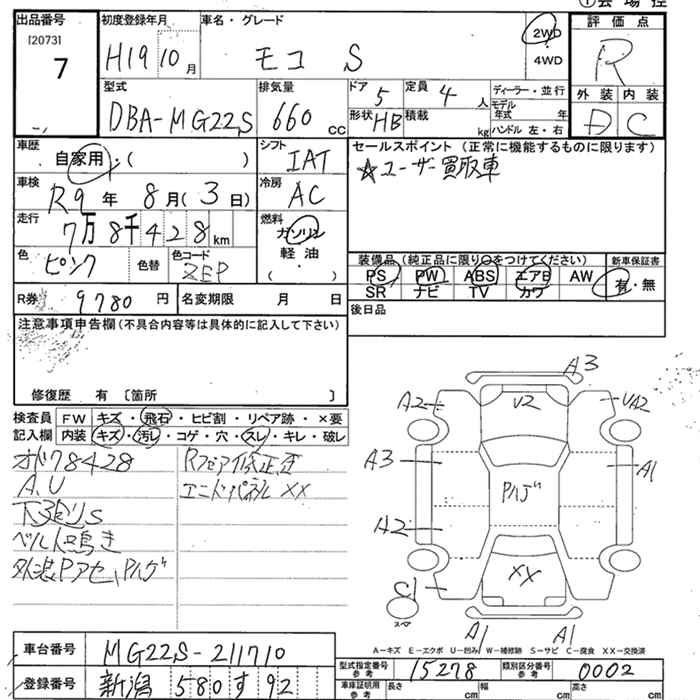 ①会場控
出品番号
[2073]
7
初度登録年月
H19 10月
車名・グレード
モコ S
2WD
4WD
評価点
R
外装 内装
D C
型式
DBA-MG22S
排気量
660 cc
ドア 5
形状 HB
定員 4 人
積載 kg
ディーラー・並行
モデル年式 年
ハンドル 左・右
車歴
自家用・( )
シフト
IAT
セールスポイント (正常に機能するものに限ります)
☆ユーザー買取車
車検
R9年 8月(3日)
冷房
AC
走行
7万8千428km
燃料
ガソリン
軽油・
( )
色
ピンク
色替
色コード
ZEP
装備品(純正品に限り○をつけてください)
PS PW ABS エアB AW
SR ナビ TV カワ
新車保証書
有・無
R券 9780円
名変期限 月 日
後日品
注意事項申告欄(不具合内容等は具体的に記入して下さい)
修復歴 有 〔箇所 〕
検査員記入欄
FW キズ・飛石・ヒビ割・リペア跡・×要
内装 キズ・汚レ・コゲ・穴・スレ・キレ・破レ
オド78428
A、U
下廻りS
ベルト鳴き
外装Pアセ、Pハゲ
Rフロア修正歪
エンドパネルXX
A3
A2
U2
UA2
A3
Pハゲ
A1
A2
XX
C1
スペア
A1
A1
A-キズ E-エクボ U-凹み W-補修跡 S-サビ C-腐食 XX-交換済
車台番号 MG22S-211710
登録番号 新潟 580す92
型式指定番号 参考 15278
類別区分番号 参考 0002
車庫証明用 参考
長さ cm
幅 cm
高さ cm